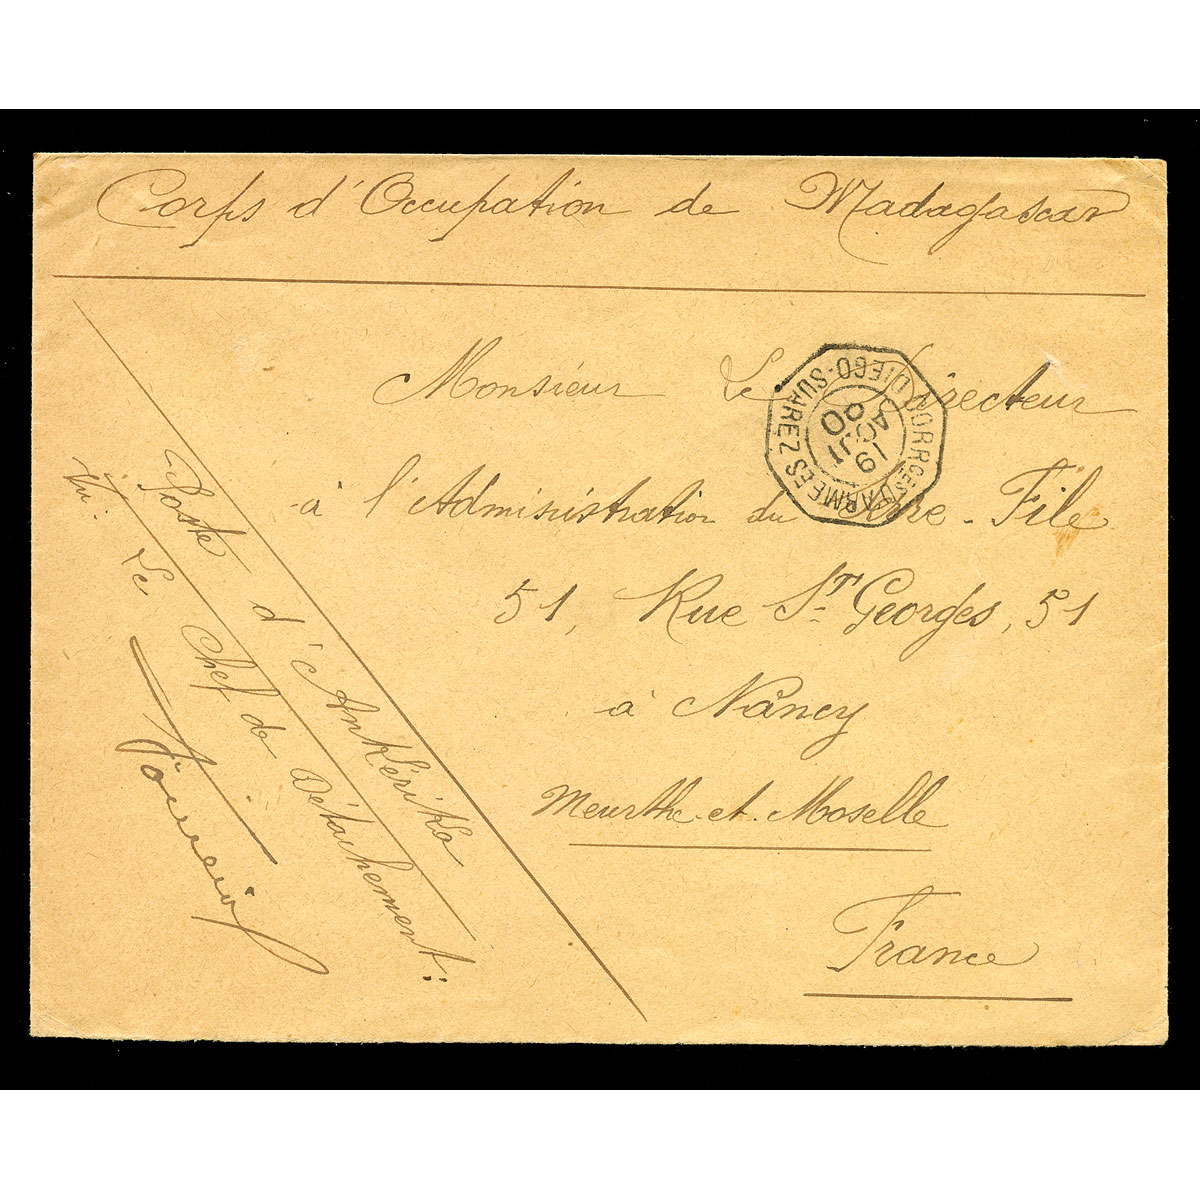 Corps d'Occupation de Madagascar
Monsieur Le Directeur
à l'Administration du Serre-File
51, Rue St. Georges, 51
à Nancy
Meurthe-et-Moselle
France
Poste d'Ankérika
Vu: Le Chef de Détachement:
CORR. CES D'ARMEES DIEGO-SUAREZ
19
AOUT
00